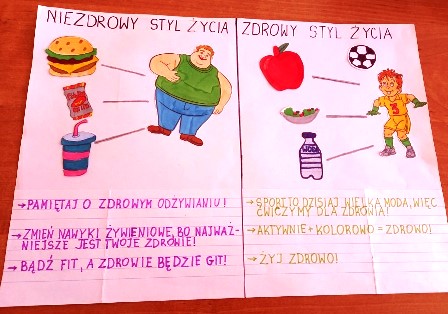 NIEZDROWY STYL ŻYCIA
→PAMIĘTAJ O ZDROWYM ODŻYWIANIU!
→ZMIEŃ NAWYKI ŻYWIENIOWE, BO NAJWAŻ-
NIEJSZE JEST TWOJE ZDROWIE!
→BĄDŹ FIT, A ZDROWIE BĘDZIE GIT!
ZDROWY STYL ŻYCIA
WODA
→SPORT TO DZISIAJ WIELKA MODA, WIĘC
ĆWICZYMY DLA ZDROWIA!
→AKTYWNIE + KOLOROWO = ZDROWO!
→ŻYJ ZDROWO!